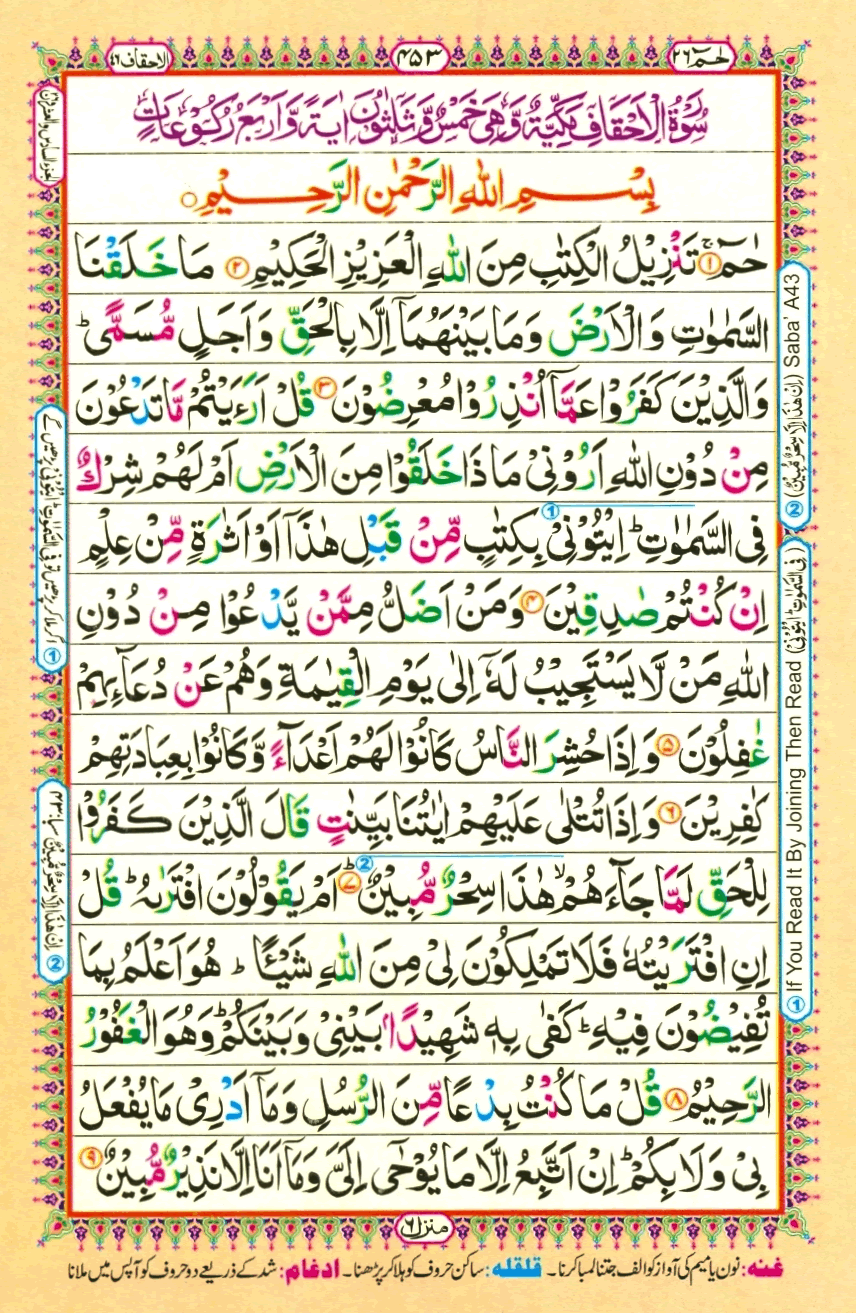 الاحقاف ٤٦
٤٥٣
حٰمٓ ٢٦
سُوْرَةُ الْاَحْقَافِ مَكِّيَّةٌ وَّهِىَ خَمْسٌ وَّثَلٰثُوْنَ اٰيَةً وَّاَرْبَعُ رُكُوْعَاتٍ
بِسْمِ اللّٰهِ الرَّحْمٰنِ الرَّحِيْمِ ○
حٰمٓ ۚ‏ ﴿۱﴾ تَنْزِيْلُ الْكِتٰبِ مِنَ اللّٰهِ الْعَزِيْزِ الْحَكِيْمِ ﴿۲﴾ مَا خَلَقْنَا
السَّمٰوٰتِ وَالْاَرْضَ وَمَا بَيْنَهُمَاۤ اِلَّا بِالْحَقِّ وَاَجَلٍ مُّسَمًّىؕ
وَالَّذِيْنَ كَفَرُوْا عَمَّاۤ اُنْذِرُوْا مُعْرِضُوْنَ ﴿۳﴾ قُلْ اَرَءَيْتُمْ مَّا تَدْعُوْنَ
مِنْ دُوْنِ اللّٰهِ اَرُوْنِىْ مَاذَا خَلَقُوْا مِنَ الْاَرْضِ اَمْ لَهُمْ شِرْكٌ
فِى السَّمٰوٰتِؕ اِيْتُوْنِىْ بِكِتٰبٍ مِّنْ قَبْلِ هٰذَاۤ اَوْ اَثٰرَةٍ مِّنْ عِلْمٍ
اِنْ كُنْتُمْ صٰدِقِيْنَ ﴿۴﴾ وَمَنْ اَضَلُّ مِمَّنْ يَّدْعُوْا مِنْ دُوْنِ
اللّٰهِ مَنْ لَّا يَسْتَجِيْبُ لَهٗۤ اِلٰى يَوْمِ الْقِيٰمَةِ وَهُمْ عَنْ دُعَآءِهِمْ
غٰفِلُوْنَ ﴿۵﴾ وَاِذَا حُشِرَ النَّاسُ كَانُوْا لَهُمْ اَعْدَآءً وَّكَانُوْا بِعِبَادَتِهِمْ
كٰفِرِيْنَ ﴿۶﴾ وَاِذَا تُتْلٰى عَلَيْهِمْ اٰيٰتُنَا بَيِّنٰتٍ قَالَ الَّذِيْنَ كَفَرُوْا
لِلْحَقِّ لَمَّا جَآءَهُمْۙ هٰذَا سِحْرٌ مُّبِيْنٌؕ ﴿۷﴾ اَمْ يَقُوْلُوْنَ افْتَرٰٮهُؕ قُلْ
اِنِ افْتَرَيْتُهٗ فَلَا تَمْلِكُوْنَ لِىْ مِنَ اللّٰهِ شَيْئًاؕ هُوَ اَعْلَمُ بِمَا
تُفِيْضُوْنَ فِيْهِؕ كَفٰى بِهٖ شَهِيْدًاۢ بَيْنِىْ وَبَيْنَكُمْؕ وَهُوَ الْغَفُوْرُ
الرَّحِيْمُ ﴿۸﴾ قُلْ مَا كُنْتُ بِدْعًا مِّنَ الرُّسُلِ وَمَاۤ اَدْرِىْ مَا يُفْعَلُ
بِىْ وَلَا بِكُمْؕ اِنْ اَتَّبِعُ اِلَّا مَا يُوْحٰۤى اِلَىَّ وَمَاۤ اَنَا اِلَّا نَذِيْرٌ مُّبِيْنٌ ﴿۹﴾
① If You Read It By Joining Then Read (فِى السَّمٰوٰتِ ائْتُوْنِىْ)
② (اِنْ هٰذَاۤ اِلَّا سِحْرٌ مُّبِيْنٌ) Saba' A43
① اگر ملا کر پڑھیں تو فِى السَّمٰوٰتِ ائْتُوْنِىْ پڑھیں گے
② اِنْ هٰذَاۤ اِلَّا سِحْرٌ مُّبِيْنٌ سبا: ۴۳
منزل ٦
غنه: نون یا میم کی آواز کو الف جتنا لمبا کرنا۔ قلقله: ساکن حروف کو ہلا کر پڑھنا۔ ادغام: شد کے ذریعے دو حروف کو آپس میں ملانا